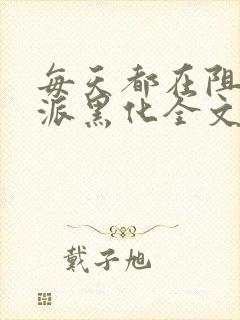 每天都在阻
派黑化全文
戴子旭